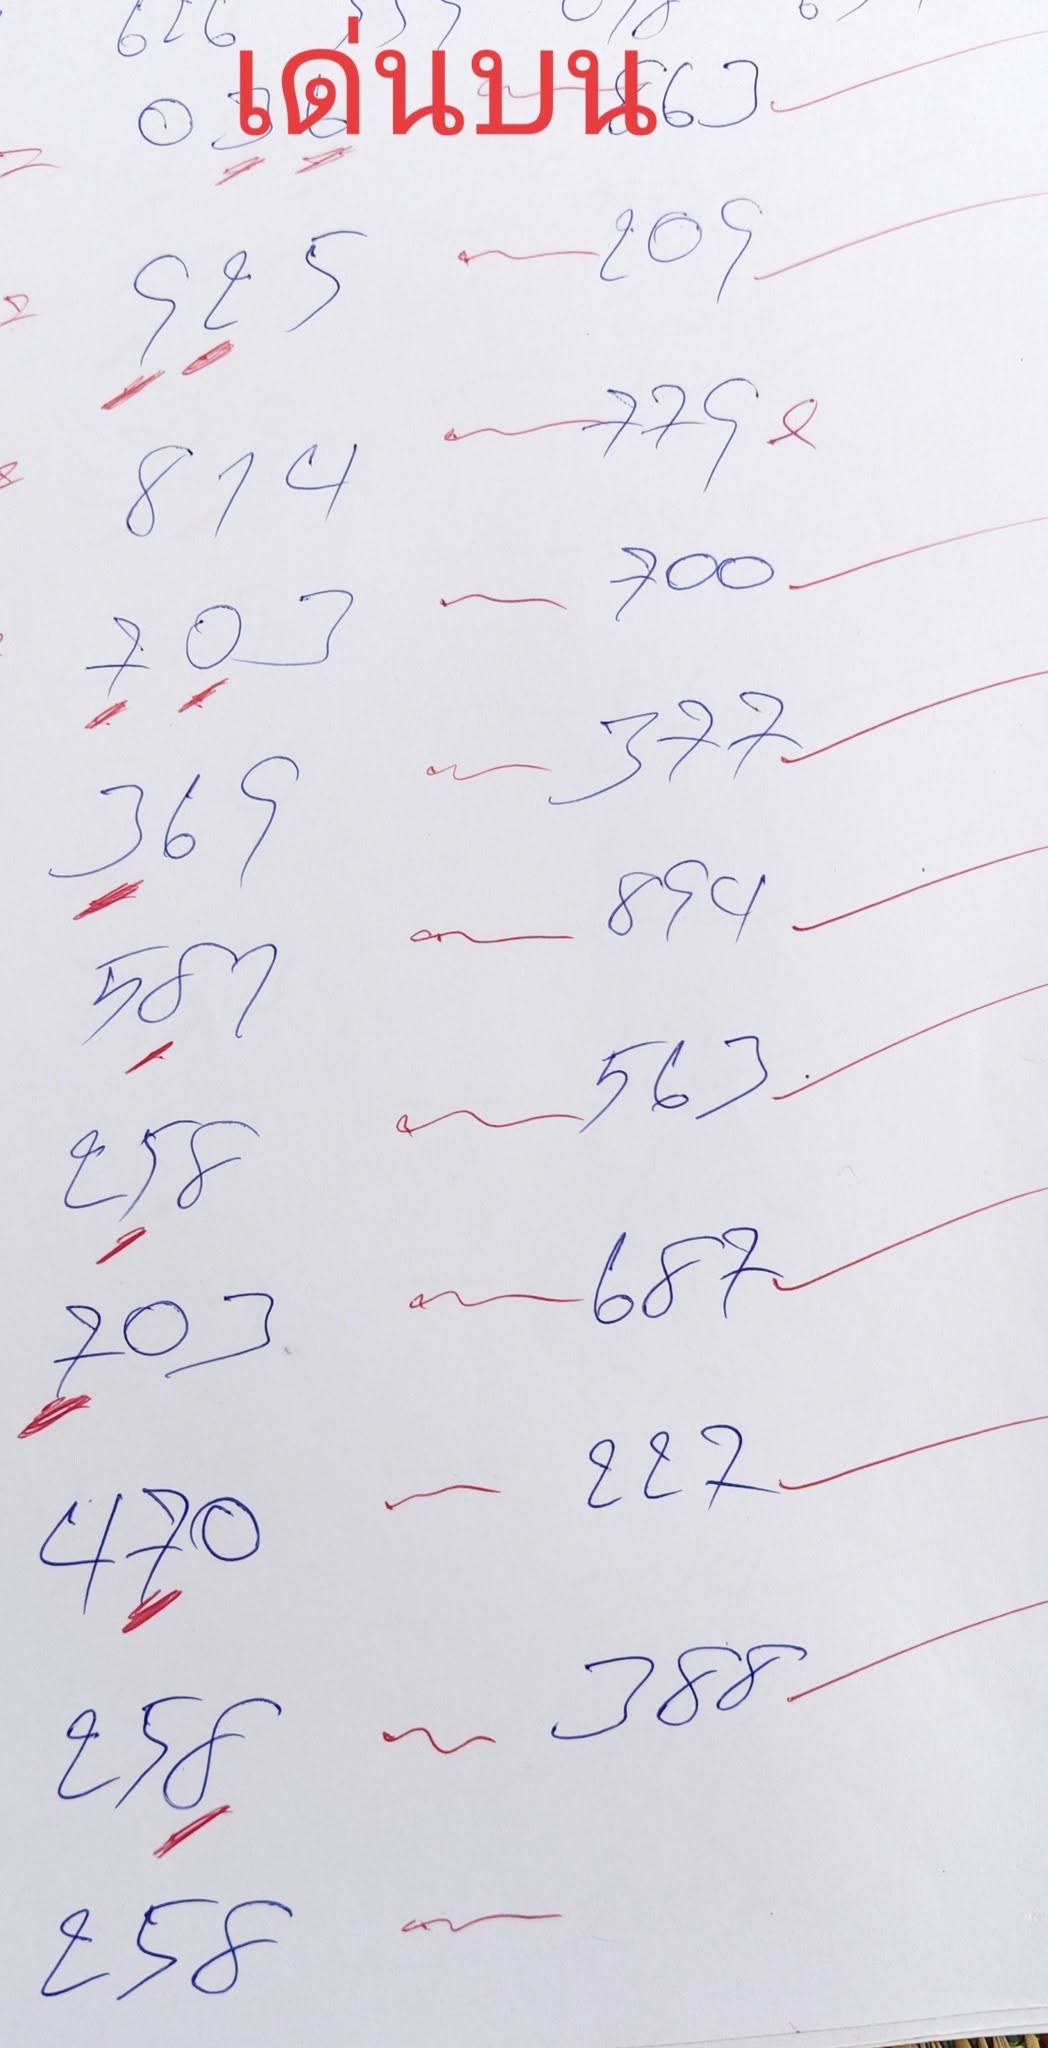 626
เด่นบน
036 863
925 209
814 779
703 700
369 377
587 894
258 563
703 687
470 227
258 388
258